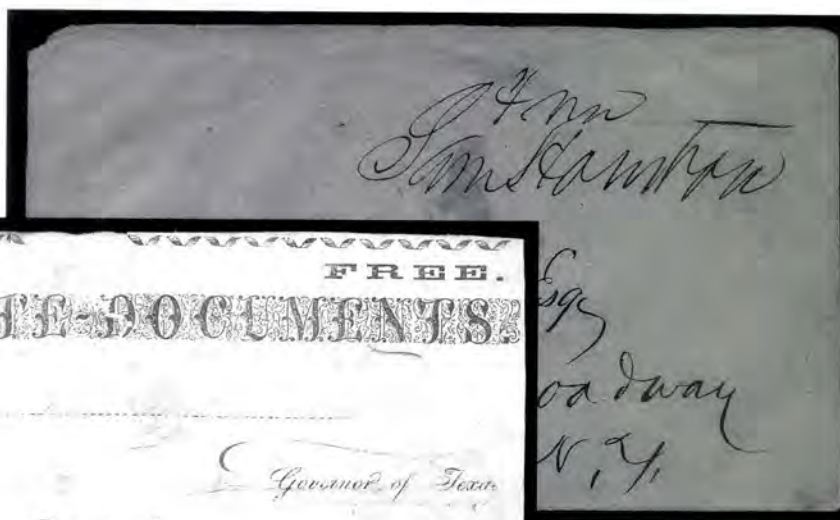 Sam Houston
Esq
oadway
N, Y,
FREE.
TE-DOCUMENTS.
Governor of Texas